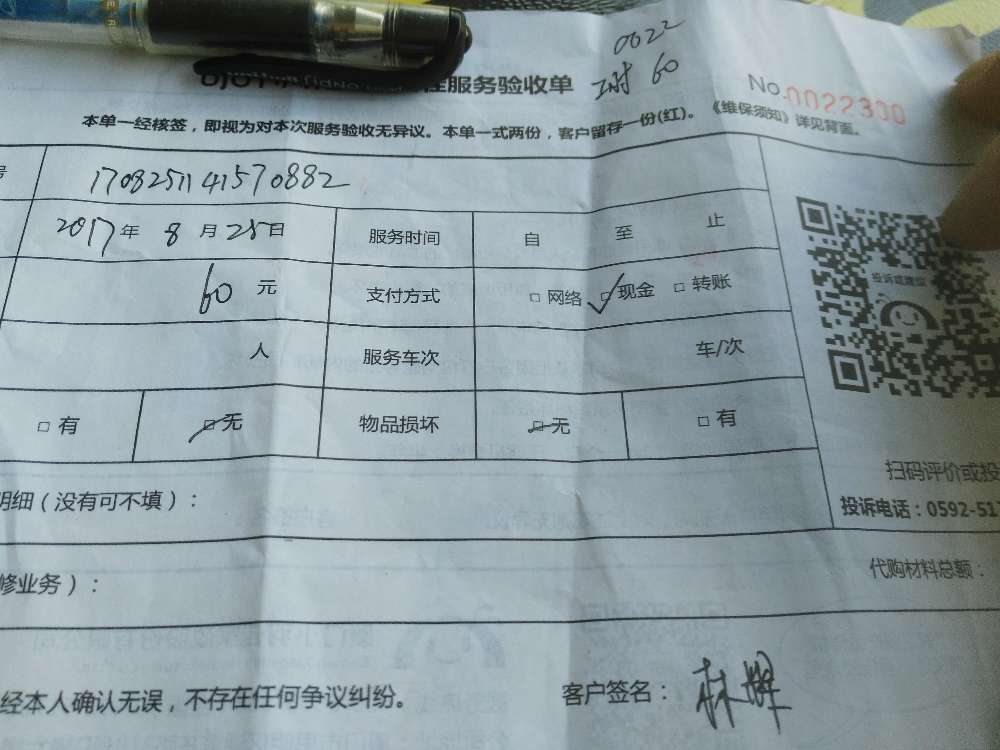 0022
服务验收单
60
No.0022300
本单一经核签，即视为对本次服务验收无异议。本单一式两份，客户留存一份(红)。《维保须知》详见背面。
号 170825114157 0882
2017年 8 月 25日 服务时间 自 至 止
60 元 支付方式 □ 网络 □ 现金 □ 转账
人 服务车次 车/次
□ 有 □ 无 物品损坏 □ 无 □ 有
投诉或建议
扫码评价或投
明细（没有可不填）：
投诉电话：0592-51
修业务）：
代购材料总额：
经本人确认无误，不存在任何争议纠纷。
客户签名：林辉